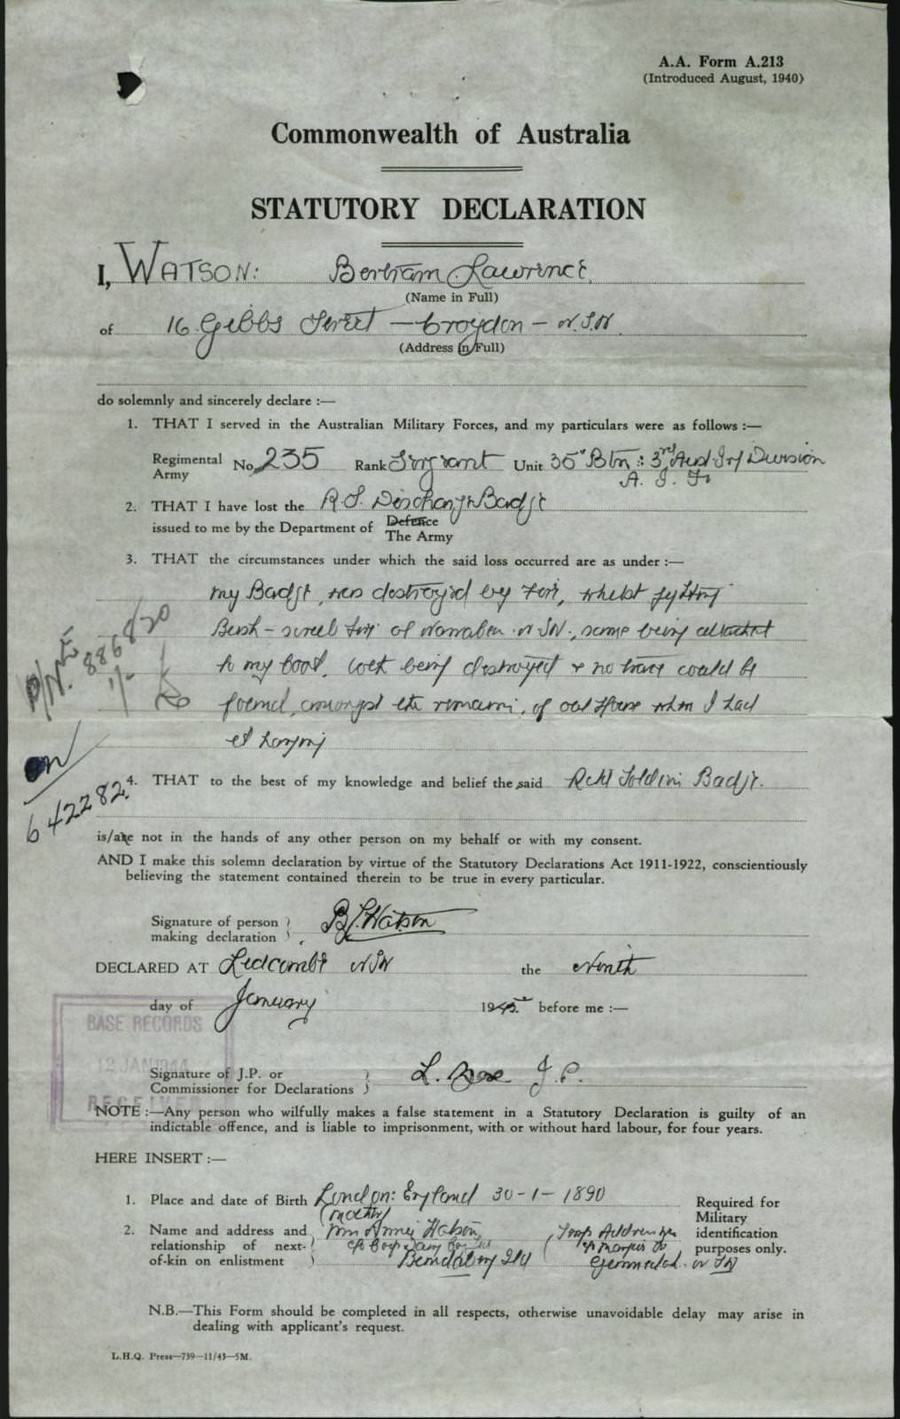 A.A. Form A.213
(Introduced August, 1940)
Commonwealth of Australia
STATUTORY DECLARATION
I, WATSON: Bertram Lawrence.
(Name in Full)
of 16 Gibbs Street - Croydon - N.S.W.
(Address in Full)
do solemnly and sincerely declare :—
1. THAT I served in the Australian Military Forces, and my particulars were as follows :—
Regimental
Army No. 235 Rank Sergeant Unit 35 Btn: 3rd Aust Inf Division
A. I. F.
2. THAT I have lost the R.S. Discharge Badge
issued to me by the Department of Defence
The Army
3. THAT the circumstances under which the said loss occurred are as under :—
my Badge was destroyed by Fire, whilst fighting
Bush - of Narrabri NSW., same being attached
to my Coat, Coat being destroyed & no trace could be
found, amongst the remains, of when I had
P/N. 886820
1/-
642282
4. THAT to the best of my knowledge and belief the said Badge.
is/are not in the hands of any other person on my behalf or with my consent.
AND I make this solemn declaration by virtue of the Statutory Declarations Act 1911-1922, conscientiously
believing the statement contained therein to be true in every particular.
Signature of person
making declaration B L Watson
DECLARED AT Lidcombe NSW the Ninth
day of January 19 before me :—
BASE RECORDS
12 JAN 1944
RECEIVED
Signature of J.P. or
Commissioner for Declarations L. J.P.
NOTE :—Any person who wilfully makes a false statement in a Statutory Declaration is guilty of an
indictable offence, and is liable to imprisonment, with or without hard labour, for four years.
HERE INSERT :—
1. Place and date of Birth London: England 30-1-1890
2. Name and address and
relationship of next-
of-kin on enlistment
(mother)
Mrs Annie Watson
Bundaberg Qld
Required for
Military
identification
purposes only.
N.B.—This Form should be completed in all respects, otherwise unavoidable delay may arise in
dealing with applicant's request.
L.H.Q. Press—739—11/43—5M.